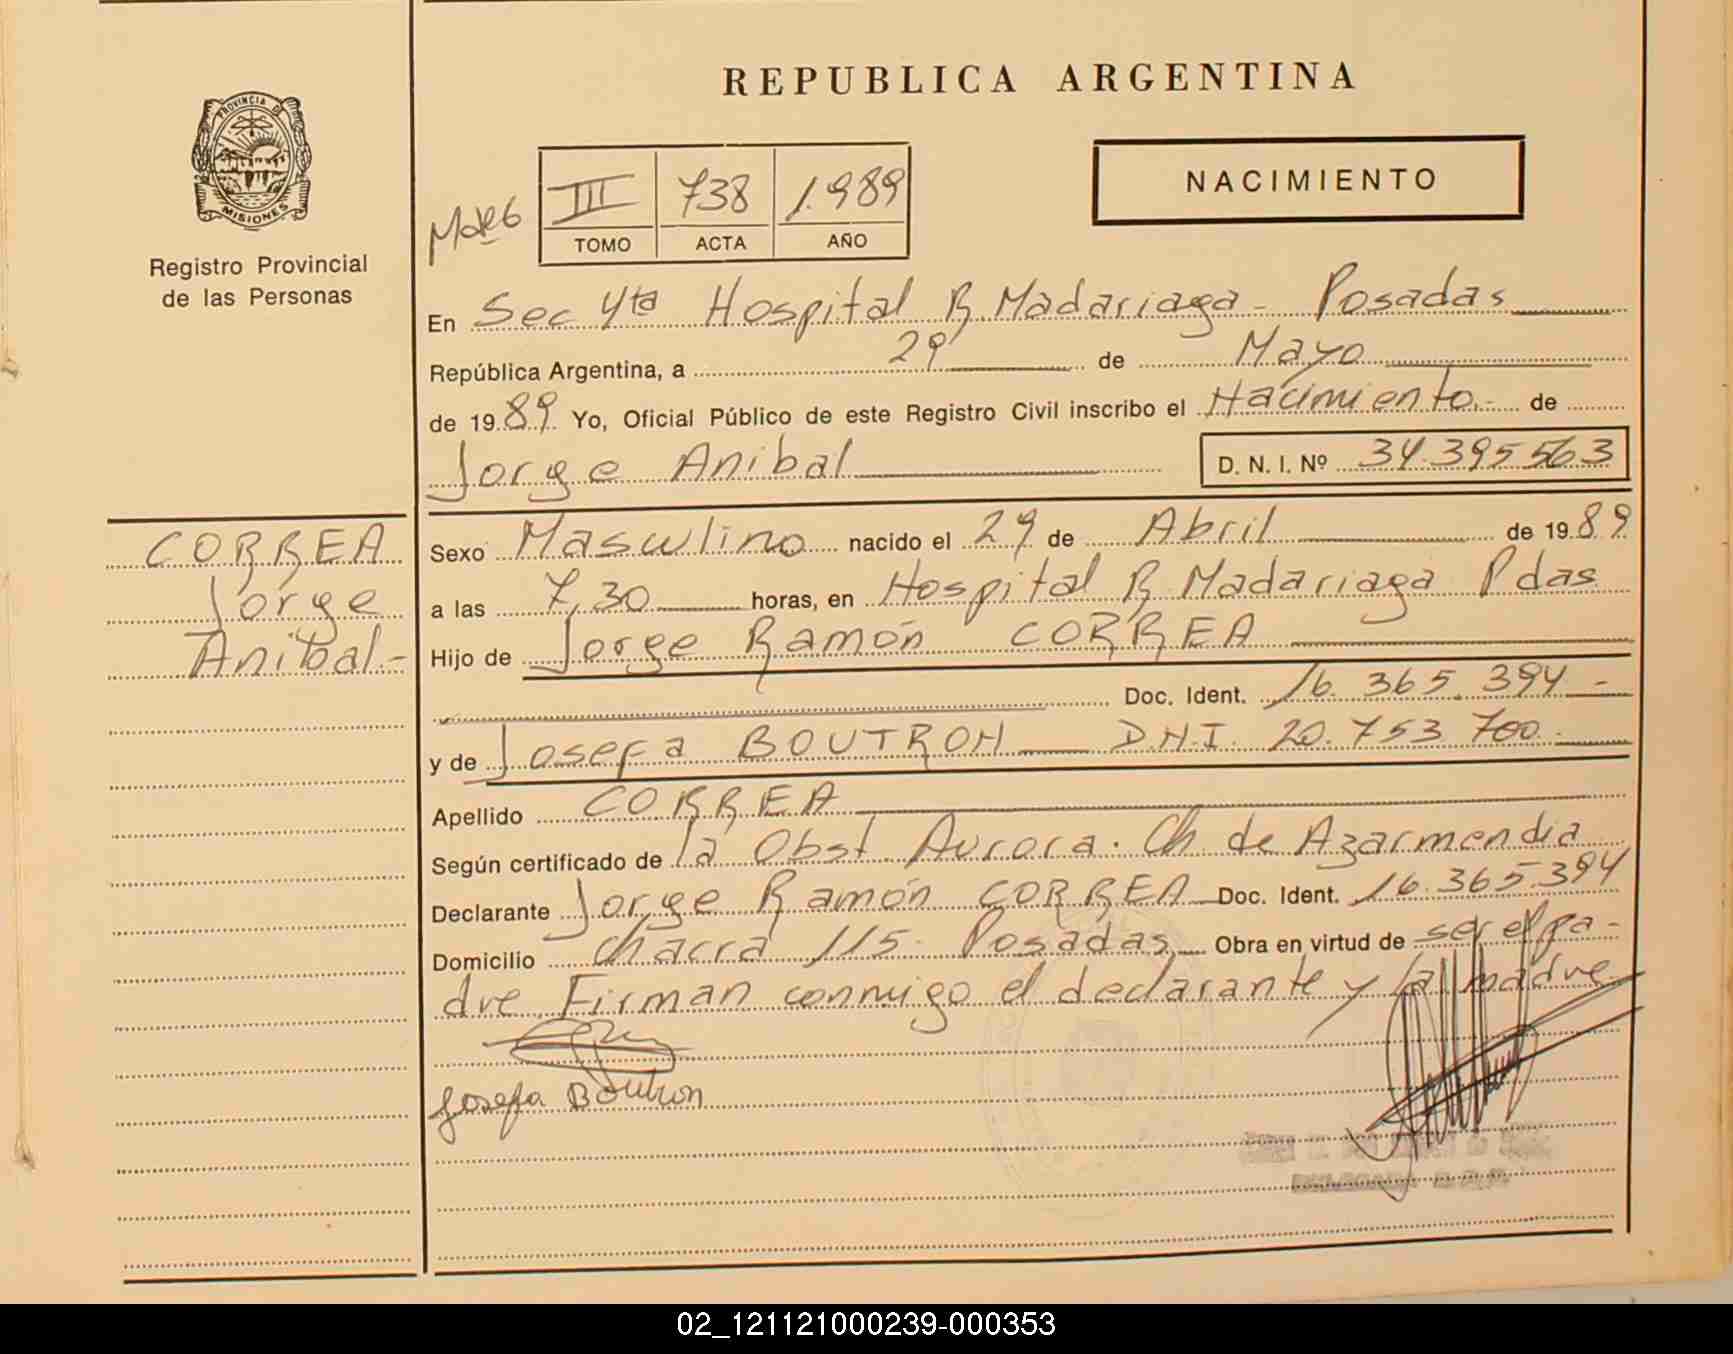 REPUBLICA ARGENTINA
PROVINCIA DE
MISIONES
Registro Provincial
de las Personas
III 738 1.989
TOMO ACTA AÑO
NACIMIENTO
En Sec 4ta Hospital R. Madariaga - Posadas
República Argentina, a 29 de Mayo
de 1989 Yo, Oficial Público de este Registro Civil inscribo el Nacimiento.- de
Jorge Anibal D. N. I. Nº 34.395563
CORREA
Jorge
Anibal.-
Sexo Masculino nacido el 29 de Abril de 1989
a las 7,30 horas, en Hospital R. Madariaga Pdas
Hijo de Jorge Ramón CORREA
Doc. Ident. 16.365.394-
y de Josefa BOUTRON D.N.I. 20.753 700.-
Apellido CORREA
Según certificado de la Obst. Aurora. Ch de Azarmendia
Declarante Jorge Ramón CORREA Doc. Ident. 16.365.394
Domicilio Chacra 115- Posadas Obra en virtud de ser el pa-
dre. Firman conmigo el declarante y la madre
Josefa Boutron
02_121121000239-000353